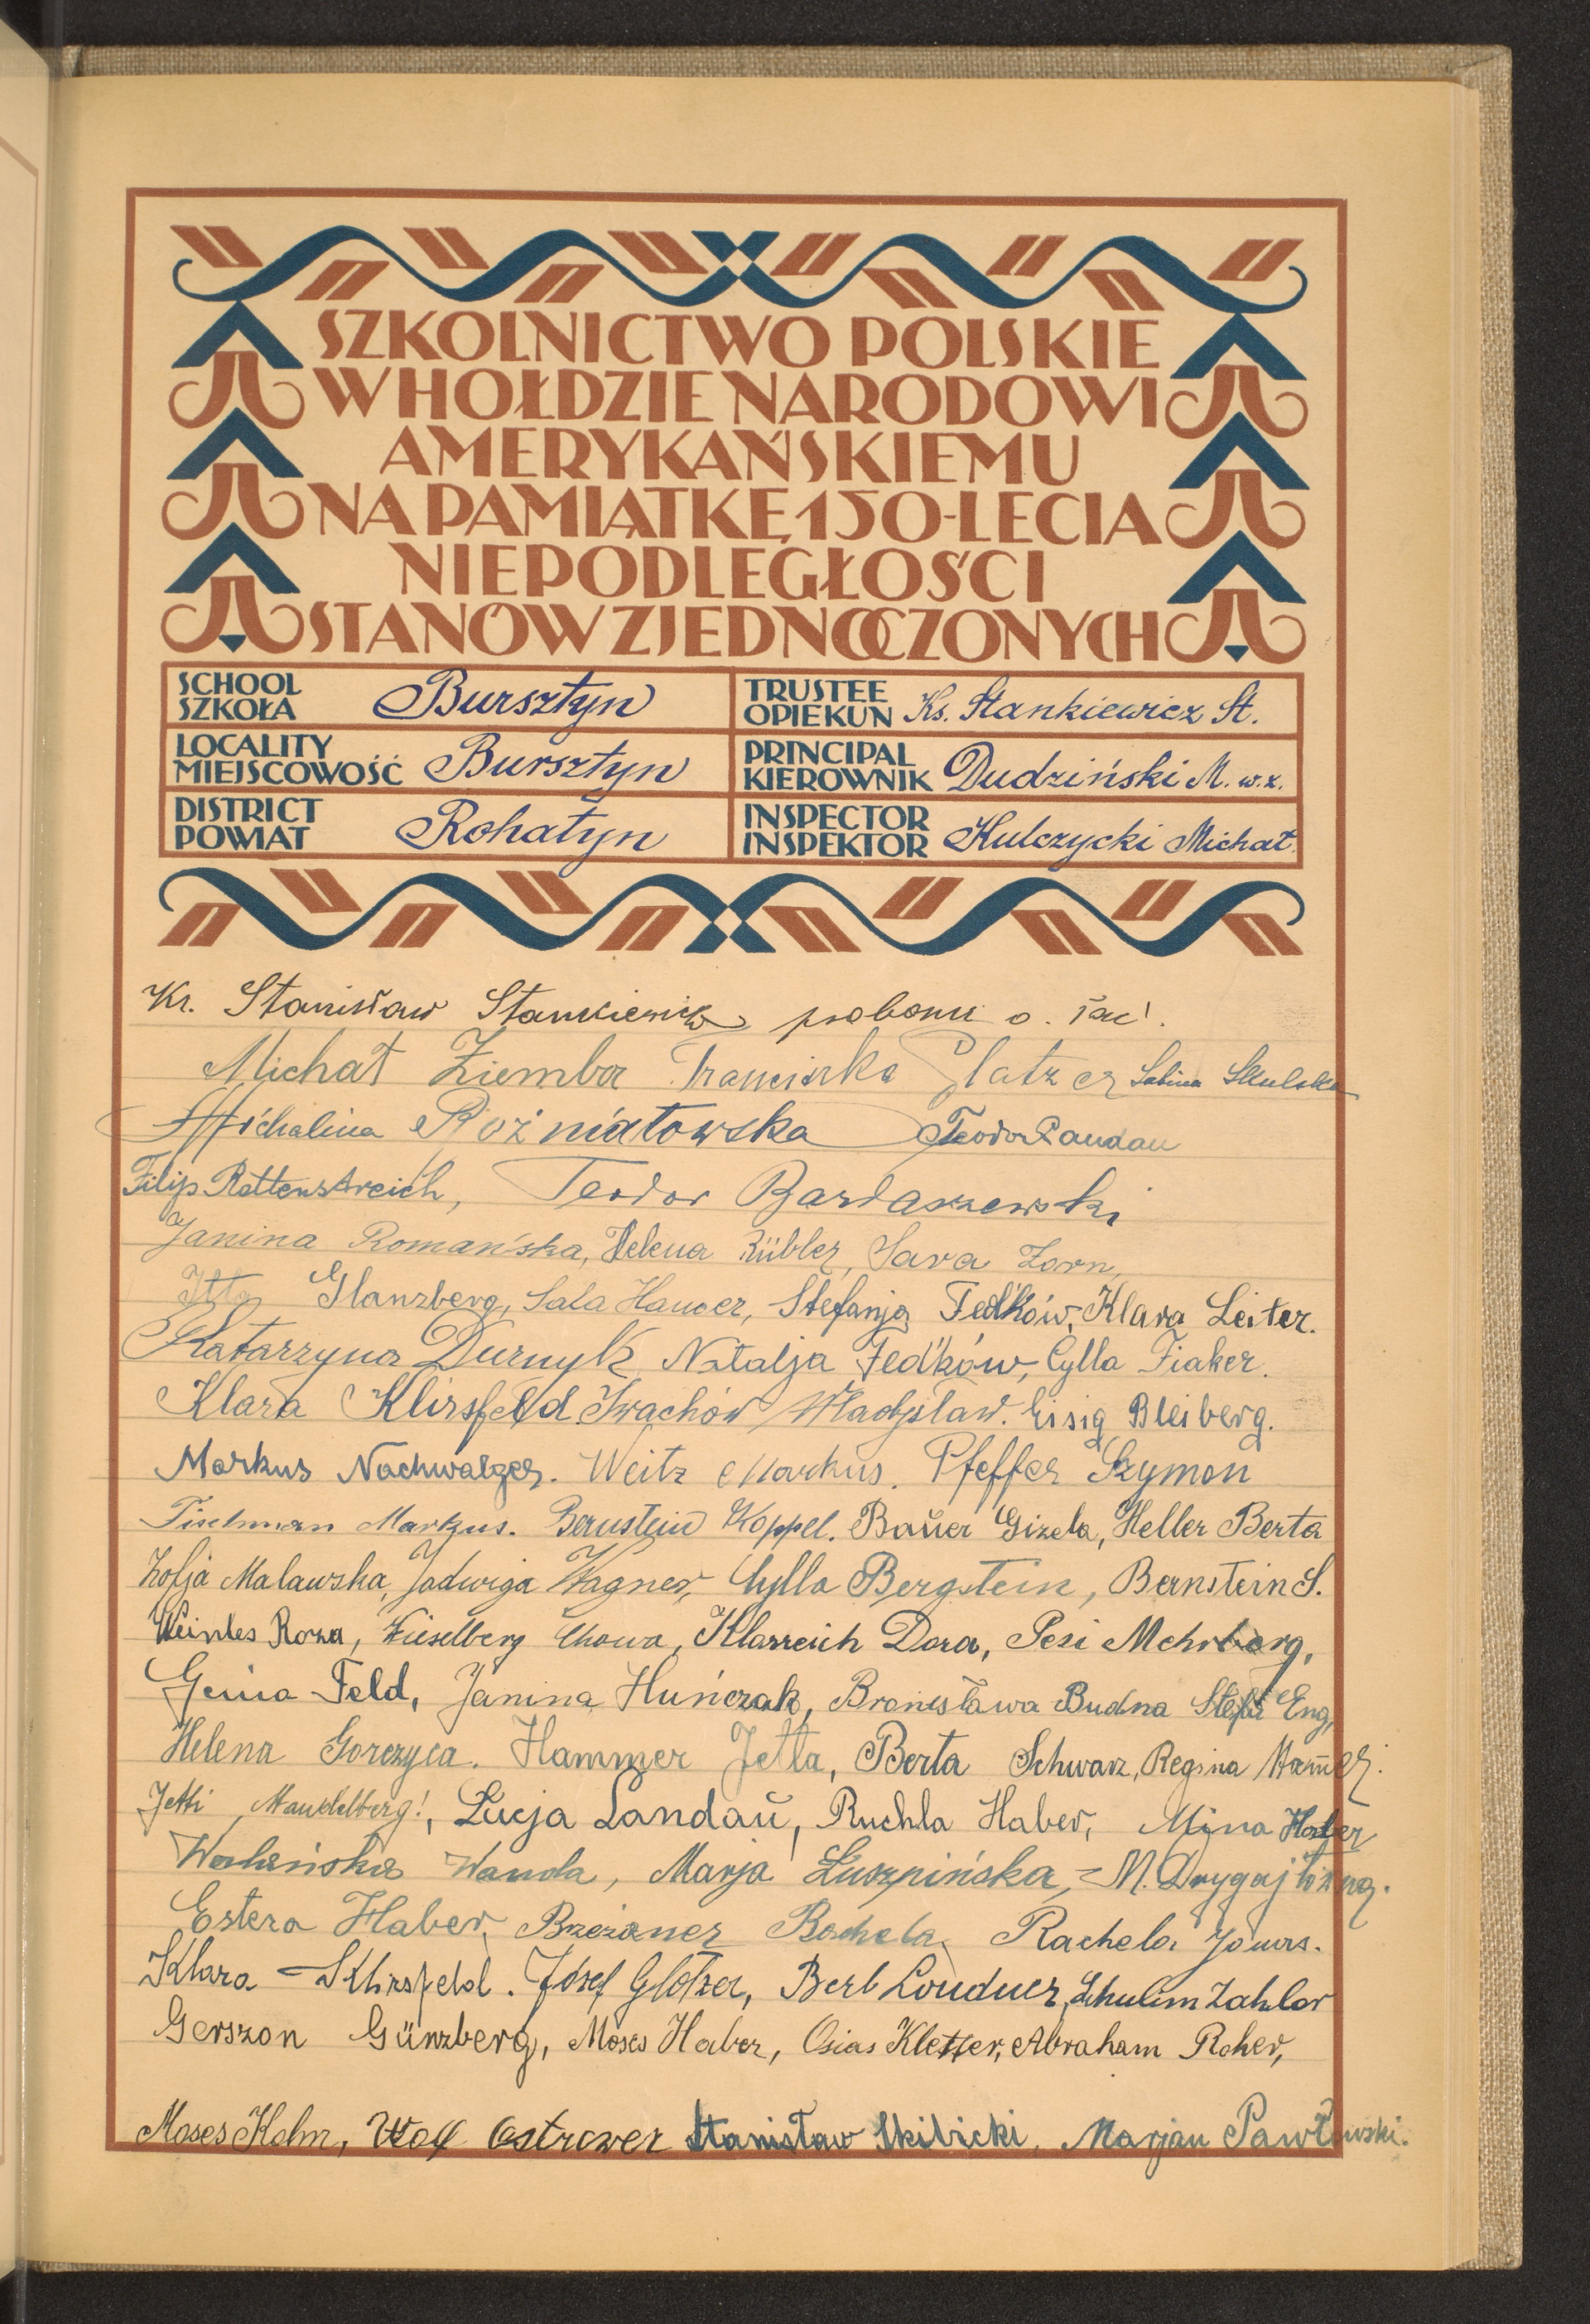 SZKOLNICTWO POLSKIE
W HOŁDZIE NARODOWI
AMERYKAŃSKIEMU
NA PAMIĄTKĘ 150-LECIA
NIEPODLEGŁOŚCI
STANÓW ZJEDNOCZONYCH
SCHOOL SZKOŁA Bursztyn
TRUSTEE OPIEKUN Ks. Stankiewicz St.
LOCALITY MIEJSCOWOŚĆ Bursztyn
PRINCIPAL KIEROWNIK Dudziński M. w.z.
DISTRICT POWIAT Rohatyn
INSPECTOR INSPEKTOR Kulczycki Michał.
Ks. Stanisław Stankiewicz o. łac.
Michał Ziemba Franciszka Platzer Sabina Skulska
Michalina Rożniatowska Teodor Landau
Filip Rottenstreich, Teodor Bardaszewski
Janina Romańska, Helena Kübler, Sara Zorn,
Itta Glanzberg, Sala Hauser, Stefanja Fedków, Klara Leiter.
Katarzyna Durnyk Natalja Fedków, Cylla Fiaker.
Klara Klirsfeld Iwachów Władysław. Eisig Bleiberg.
Markus Nachwalger. Weitz Markus. Pfeffer Szymon
Fischman Markus. Bernstein Koppel. Baŭer Gizela, Heller Berta
Zofja Malawska, Jadwiga Wagner, Cylla Bergstein, Bernstein S.
Weintes Roza, Wieselberg Chowa, Klarreich Dora, Pesi Mehrberg,
Genia Feld, Janina Huńczak, Bronisława Budna Stefa Eng,
Helena Gorczyca. Hammer Jetta, Berta Schwarz, Regina Ham̄er.
Jetti Mandelberg!, Łucja Landaŭ, Ruchla Haber, Mina Haber
Wanda, Marja Łuszpińska, M. Drygajłówna.
Estera Haber, Brzezaner Rachela, Rachela Jonas.
Klara Klirsfeld. Józef Glotzer, Berl Londner, Schulim Zahler
Gerszon Günzberg, Moses Haber, Osias Kletter, Abraham Roher,
Moses Hohn, Wolf Ostrower Stanisław Skibicki, Marjan Pawłowski.